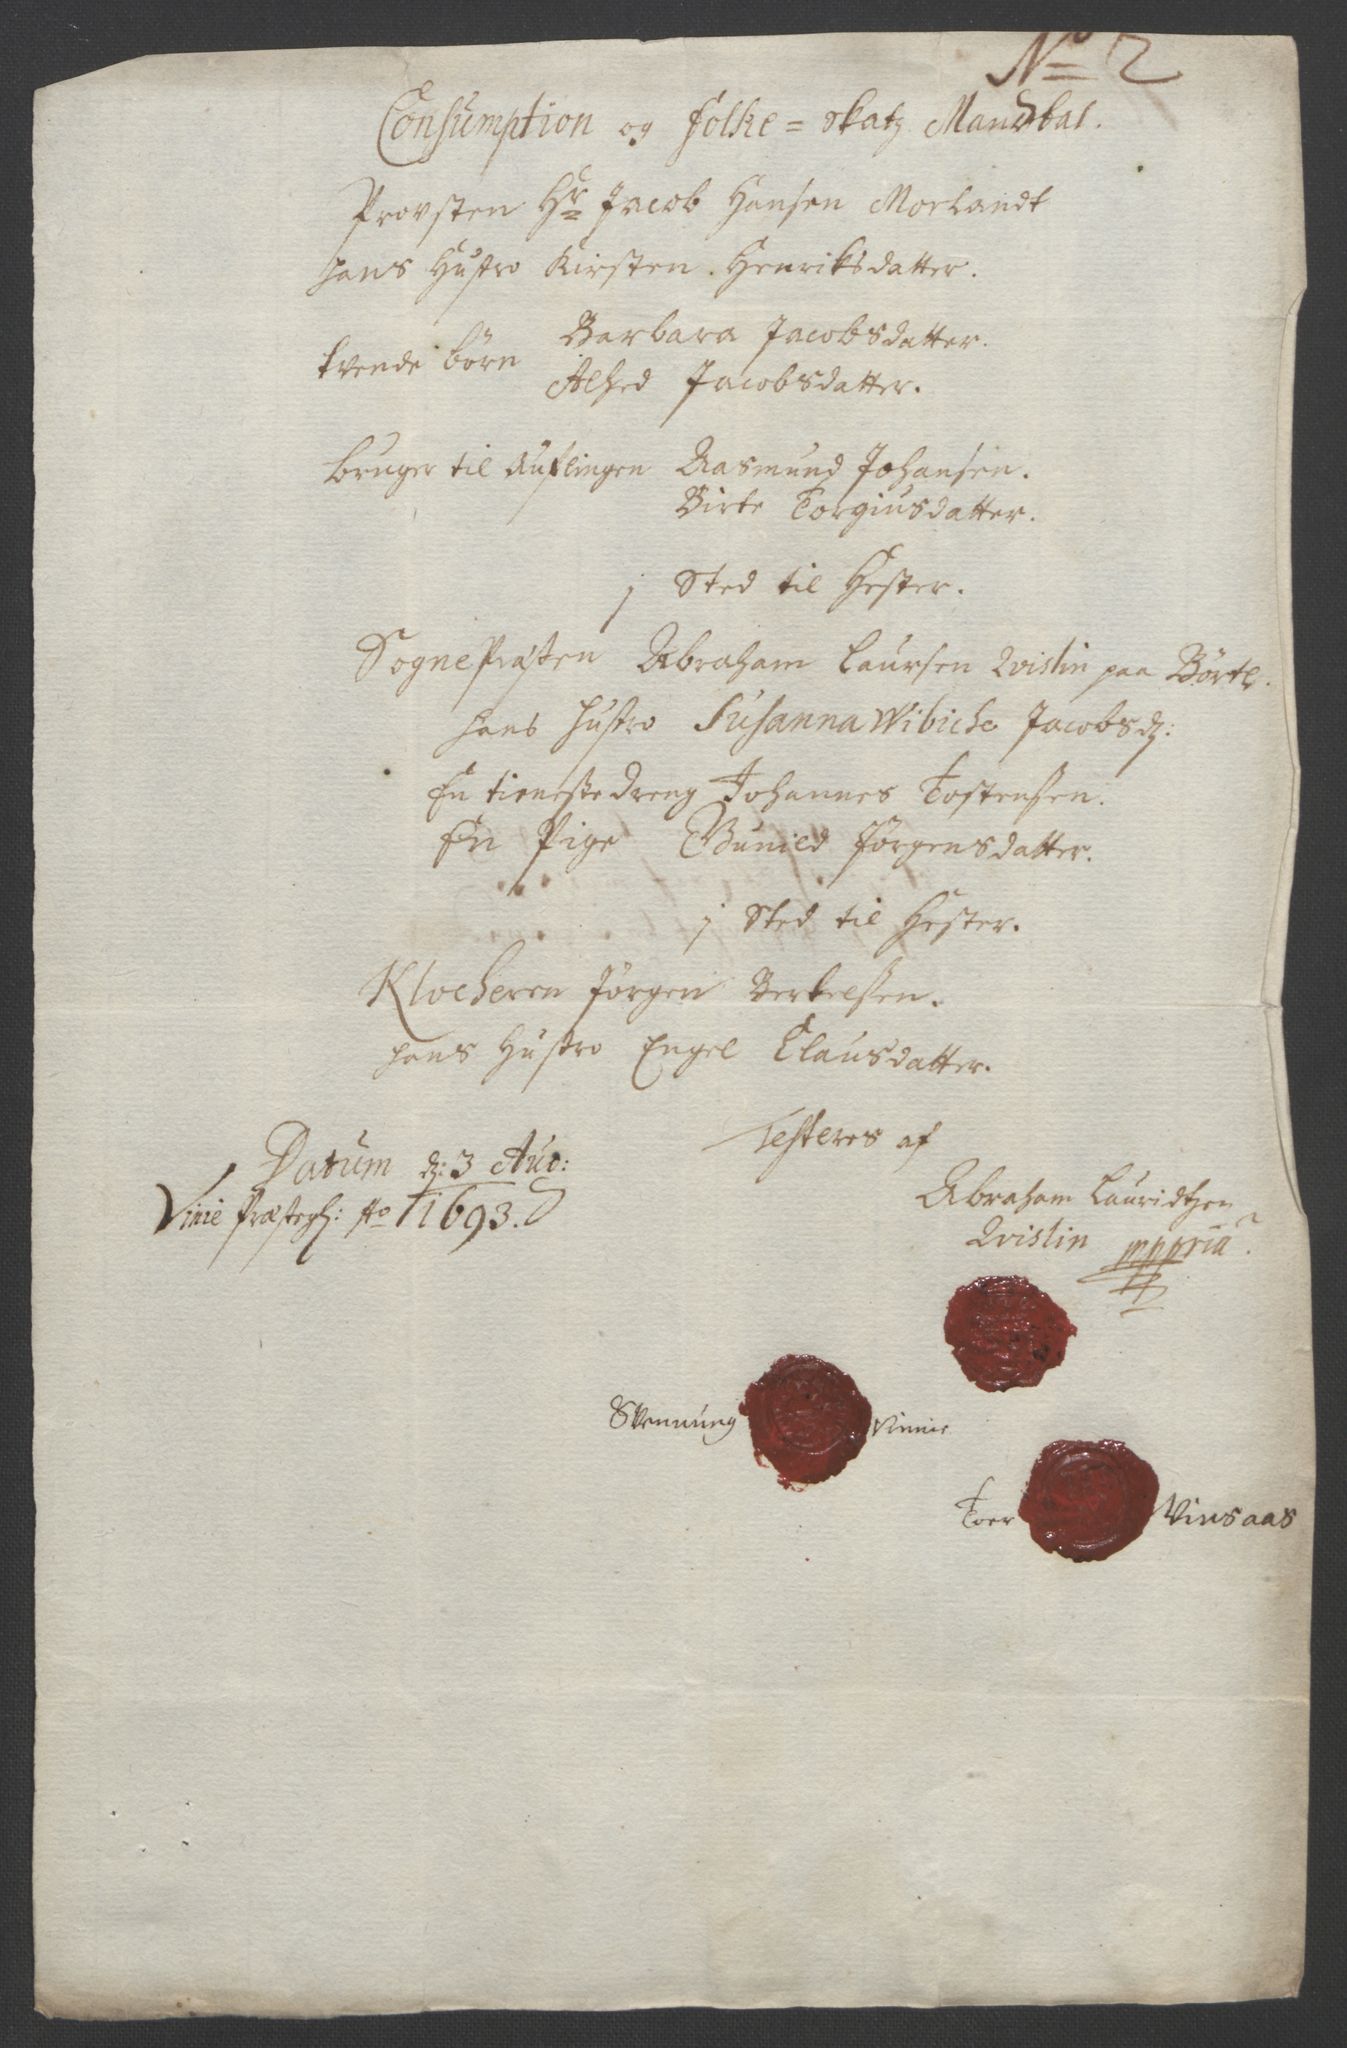 No 2
Consumption og folke = skatz Mandtal.
Provsten Hr Jacob Hansen Morlandt
hans Hustro Kirsten Henriksdatter.
tvende børn Barbara Jacobsdatter.
Alhed Jacobsdatter.
bruger til Auflingen Aasmund Johansen.
Birte Torgiusdatter.
j Sted til Hester.
Sognepræsten Abraham Laursen Qvislin paa Børte.
hans hustro Susanna Wibiche Jacobsdz:
En tieneste dreng Johannes Tostensen.
En Pige Gunild Jørgensdatter.
j Sted til Hester.
Klocheren Jørgen Berkelsen.
hans Hustro Engel Clausdatter.
Testeres af
Datum dz: 3 Aug:
Vinie Præstegh: Ao 1693.
Abraham Lauridtzen
Qvislin mppria
Svennung Vinnie
Toer Vinsaas